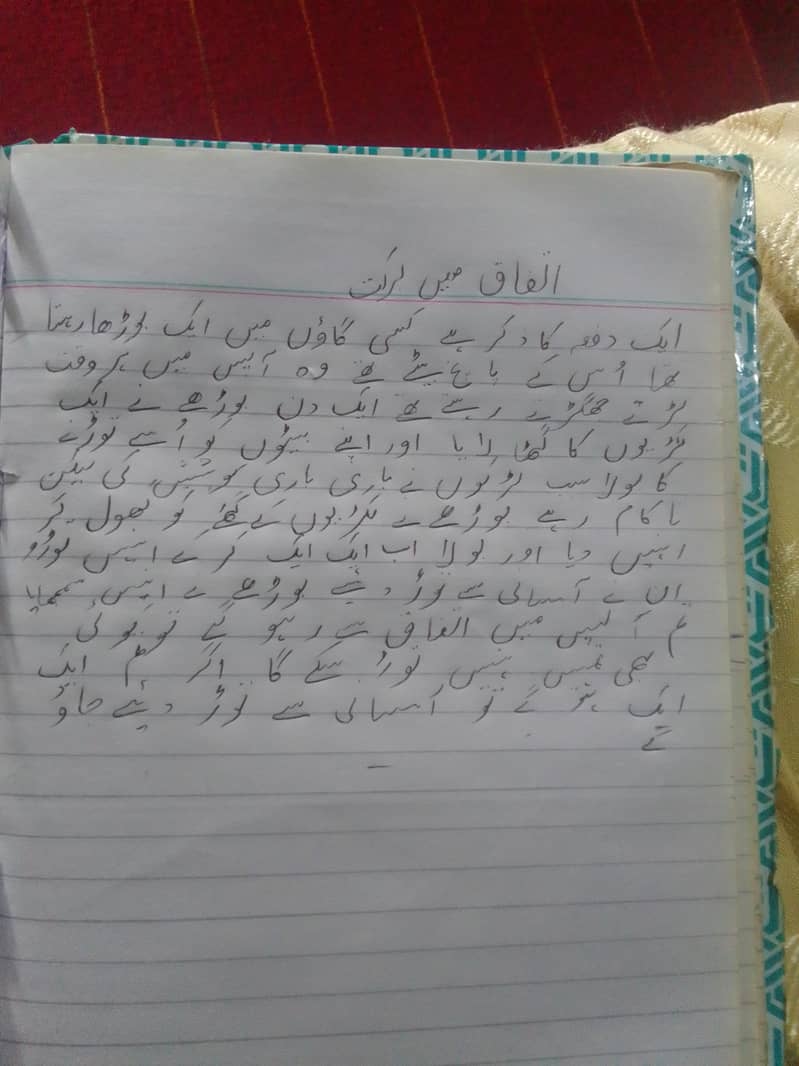 اتفاق میں برکت
ایک دفعہ کا ذکر ہے کسی گاؤں میں ایک بوڑھا رہتا
تھا اُس کے پانچ بیٹے تھے وہ آپس میں ہر وقت
لڑتے جھگڑتے رہتے تھے ایک دن بوڑھے نے ایک
لکڑیوں کا گٹھا لایا اور اپنے بیٹوں کو اُسے توڑنے
کا بولا سب لڑکوں نے باری باری کوشش کی لیکن
ناکام رہے بوڑھے نے لکڑیوں کے گٹھے کو کھول کر
انہیں دیا اور بولا اب ایک ایک کر کے انہیں توڑو
ان نے آسانی سے توڑ دیئے بوڑھے نے انہیں سمجھایا
تم آپس میں اتفاق سے رہو گے تو کوئی
بھی تمہیں نہیں توڑ سکے گا اگر تم ایک
ایک ہو گے تو آسانی سے توڑ دیئے جاؤ
گے